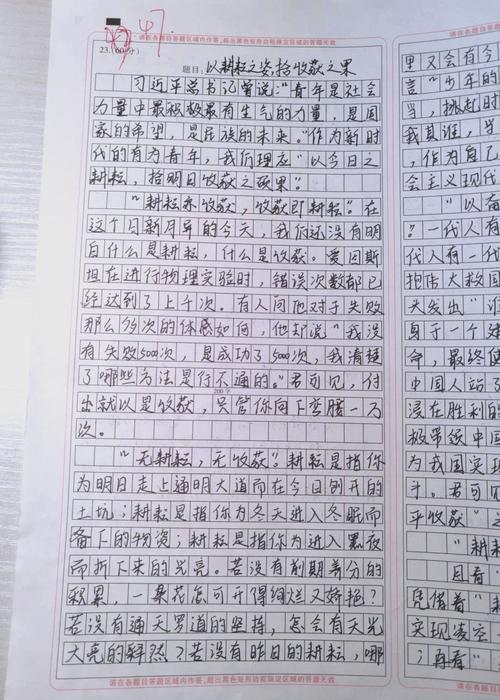 47
请在各题目答题区域内作答,超出黑色矩形边框限定区域的答题无效
23.(60分)
题目:以耕耘之姿,拾收获之果
习近平总书记曾说:“青年是社会
力量中最积极最有生气的力量,是国
家的希望,是民族的未来。”作为新时
代的有为青年,我们理应“以今日之
耕耘,拾明日收获之硕果”。
“耕耘系收获,收获即耕耘。”在
这个日新月异的今天,我们还没有明
白什么是耕耘,什么是收获。爱因斯
坦在进行物理实验时,错误次数都已
经达到了上千次。有人问他对于失败
那么多次的体感如何,他却说“我没
有失败5000次,是成功了5000次,我清楚
了哪些方法是行不通的。”君可见,付
200字
出就以是收获,只管你向下弯腰一万
次。
“无耕耘,无收获”。耕耘是指你
为明日走上通明大道而在今日刨开的
土坑;耕耘是指你为冬天进入冬眠而
备下的物资;耕耘是指你为进入黑夜
而折下来的光亮。若没有前期养分的
积累,一朵花怎可开得绚烂又娇艳?
若没有通天罗道的坚持,怎会有天光
大亮的释然?若没有昨日的耕耘,哪
请在各题目答题区域内作答,超出黑色矩形边框限定区域的答题无效
请在各题目
里又会有今
言“少年的
当,挑起时
我其谁,当
,作为自己
会主义现代
“以奋
?一代人有
代人有一代
拍伟大救国
头发出“
身于一个
命,最终
中国人站
浸在胜利的
极带逐中
为我国实现
斗。君可见
平收获”之
“耕耘
因看
凭借着“耕
实现凌空
;再看“
请在各题目